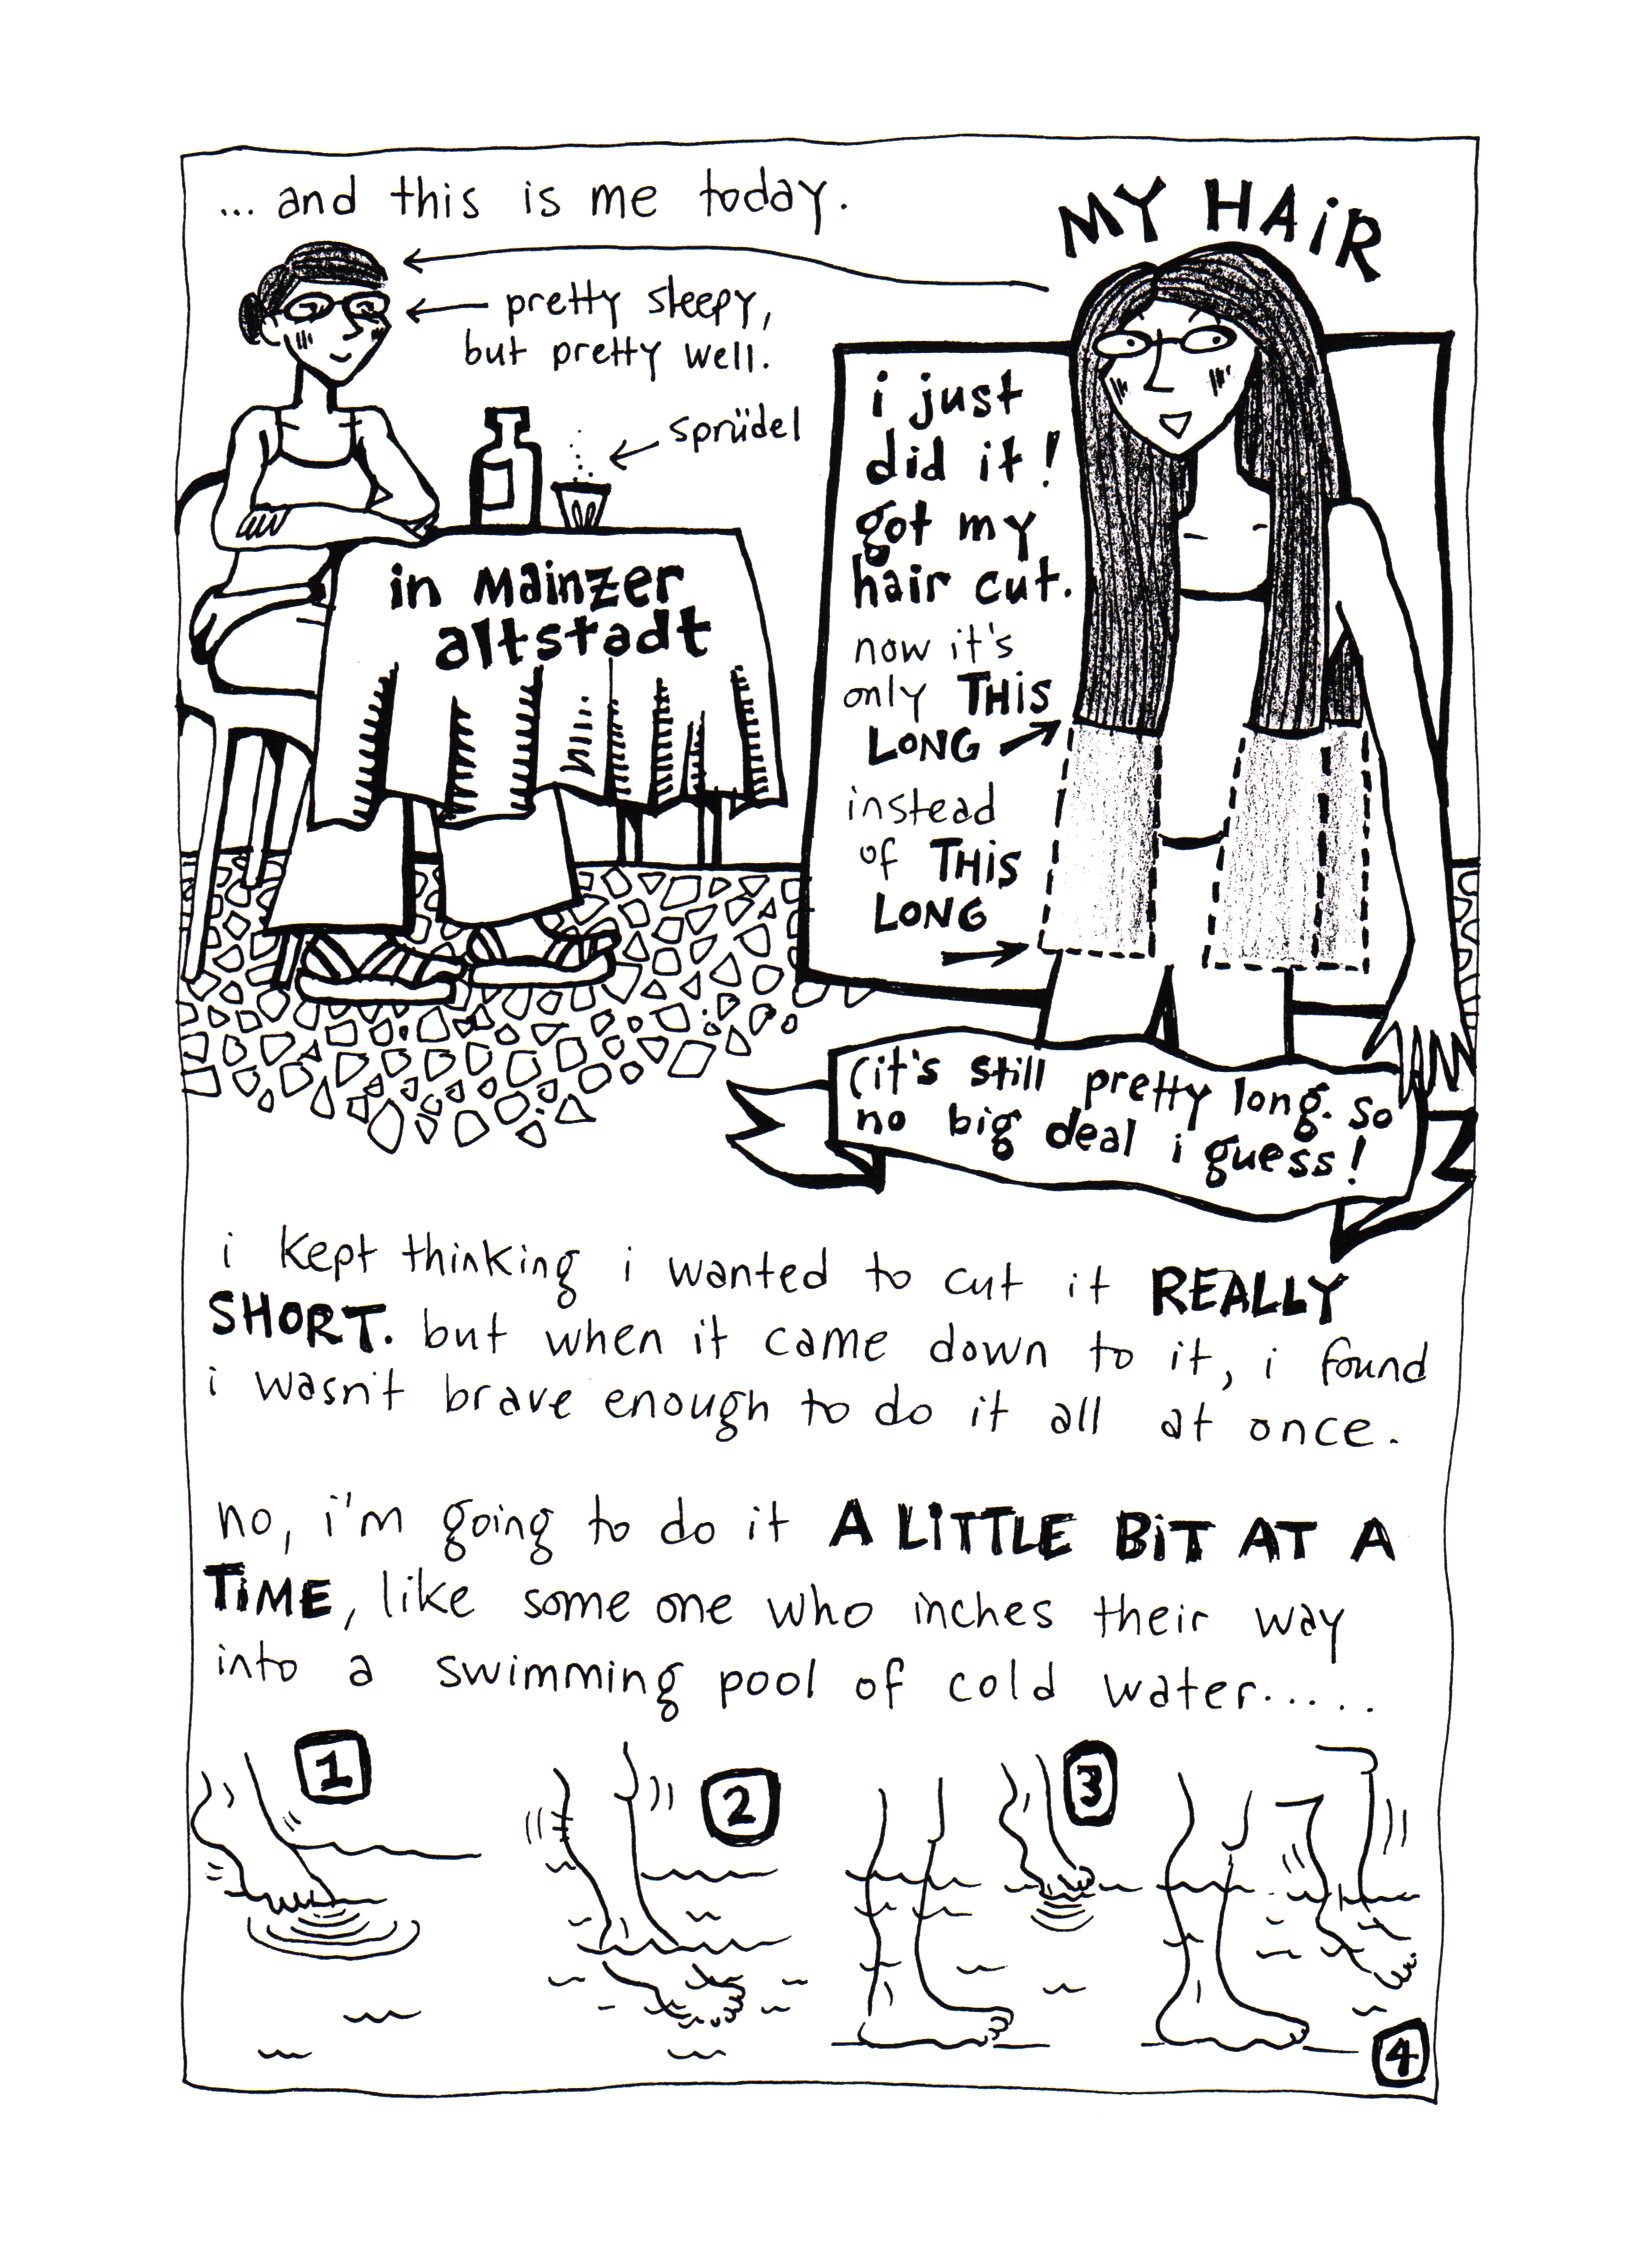 ... and this is me today.
MY HAiR
pretty sleepy,
but pretty well.
sprüdel
in Mainzer
altstadt
i just
did it!
got my
hair cut.
now it's
only THiS
LONG
instead
of THiS
LONG
(it's still pretty long. so
no big deal i guess!
i kept thinking i wanted to cut it REALLY
SHORT. but when it came down to it, i found
i wasn't brave enough to do it all at once.
no, i'm going to do it A LiTTLE BiT AT A
TiME, like some one who inches their way
into a swimming pool of cold water.....
1
2
3
4